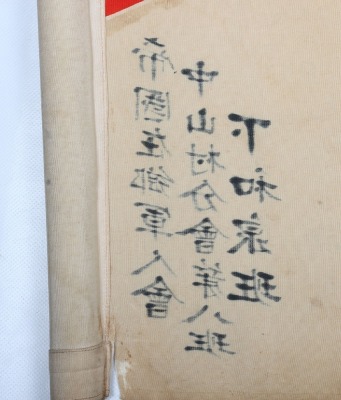 帝國在郷軍人會
中山村分會第八班
下和泉班